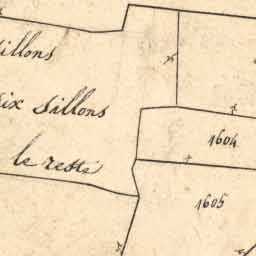 sillons
ix sillons
le reste
1604
1605